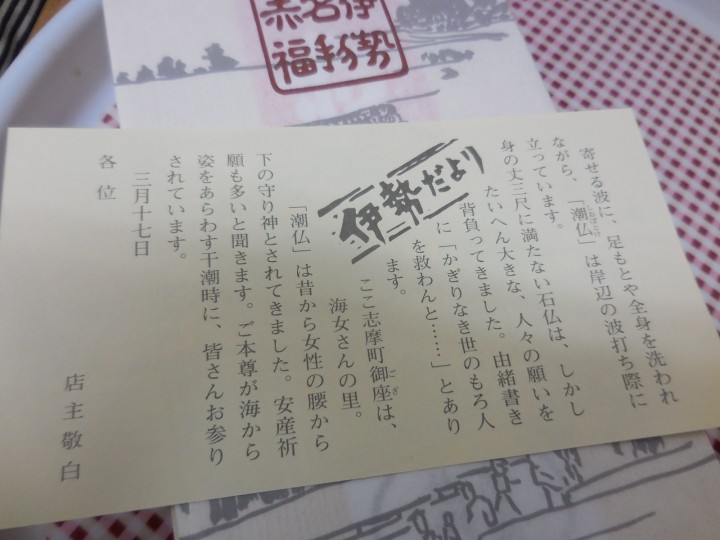 伊勢
名物
赤福
寄せる波に、足もとや全身を洗われ
ながら、「潮仏」は岸辺の波打ち際に
しおぼとけ
立っています。
身の丈三尺に満たない石仏は、しかし
たいへん大きな、人々の願いを
背負ってきました。由緒書き
に「かぎりなき世のもろ人
を救わんと……」とあり
ます。
伊勢だより
ここ志摩町御座は、
ござ
海女さんの里。
「潮仏」は昔から女性の腰から
下の守り神とされてきました。安産祈
願も多いと聞きます。ご本尊が海から
姿をあらわす干潮時に、皆さんお参り
されています。
三月十七日
店主敬白
各位